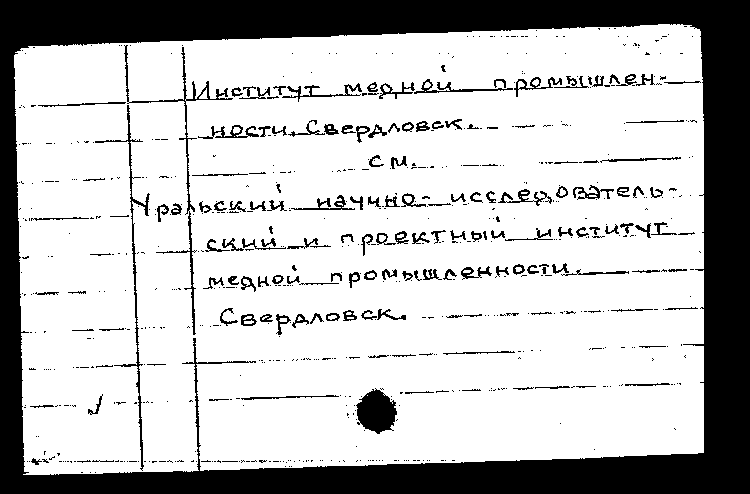 Институт медной промышлен-
ности. Свердловск.
см.
Уральский научно-исследователь-
ский и проектный институт
медной промышленности.
Свердловск.